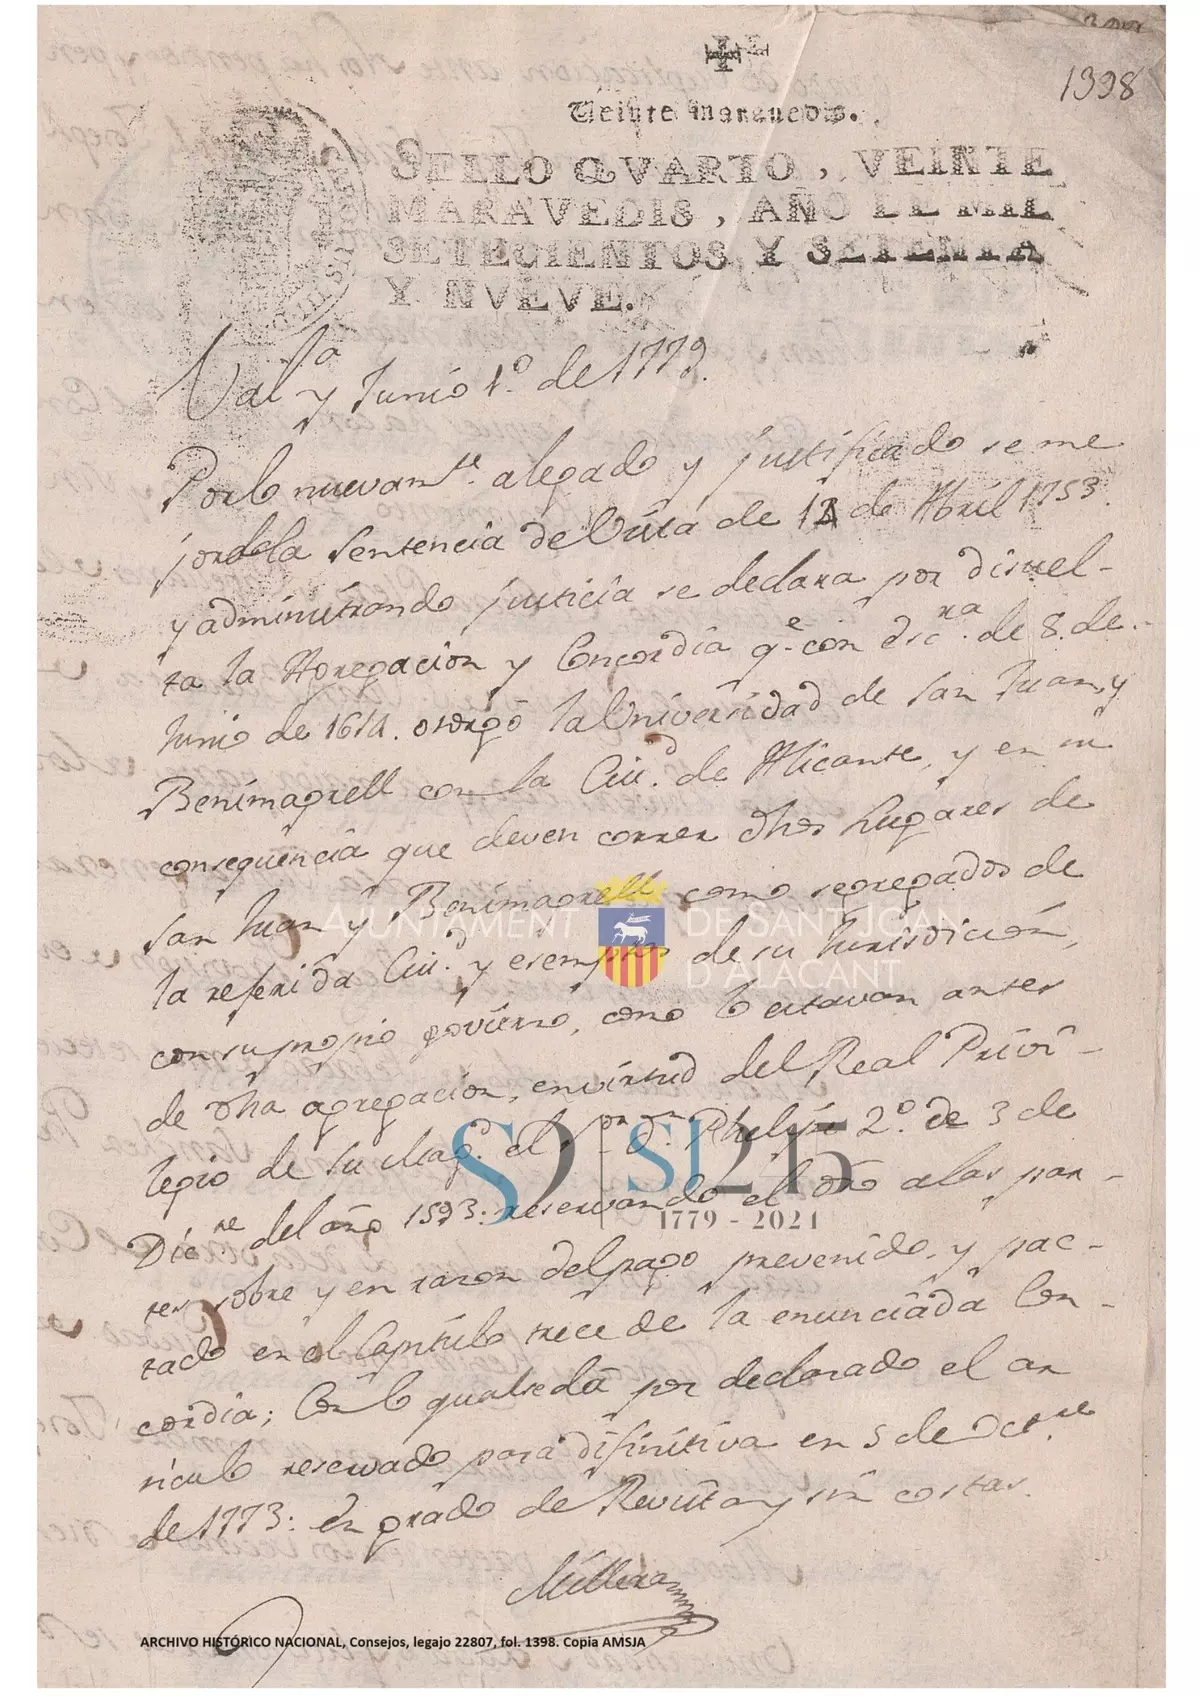 1398
Veinte maravedis.
SELLO QVARTO, VEINTE
MARAVEDIS, AÑO DE MIL
SETECIENTOS Y SETENTA
Y NVEVE.
Val.ª y Junio 1.º de 1779.
Por lo nuevam.te alegado y justificado se me
jora la Sentencia de Vista de 12 de Abril 1753.
y administrando justicia se declara por disuel-
ta la Agregacion y Concordia q.e con escr.ra de 8. de
Junio de 1614. otorgó la Universidad de San Juan, y
Benimagrell con la Ciu.d de Alicante, y en su
consequencia que deven correr dhos Lugares de
San Juan y Benimagrell como segregados de
la referida Ciu.d y esemptos de su Jurisdicion,
con su propio govierno, como lo estavan antes
de dha agregacion, en virtud del Real Privi-
legio de Su Mag.d el S.or D.n Phelipe 2.º de 3 de
Dic.re del año 1593: reservando el dro a las par-
tes sobre y en razon del pago prevenido, y pac-
tado en el Capitulo trece de la enunciada Con-
cordia; Con lo qual se dá por declarado el ar
ticulo reservado para difinitiva en 5 de Oct.re
de 1773: en grado de Revista y sin costas.
AJUNTAMENT DE SANT JOAN
D'ALACANT
SJ 245
1779 - 2024
ARCHIVO HISTÓRICO NACIONAL, Consejos, legajo 22807, fol. 1398. Copia AMSJA